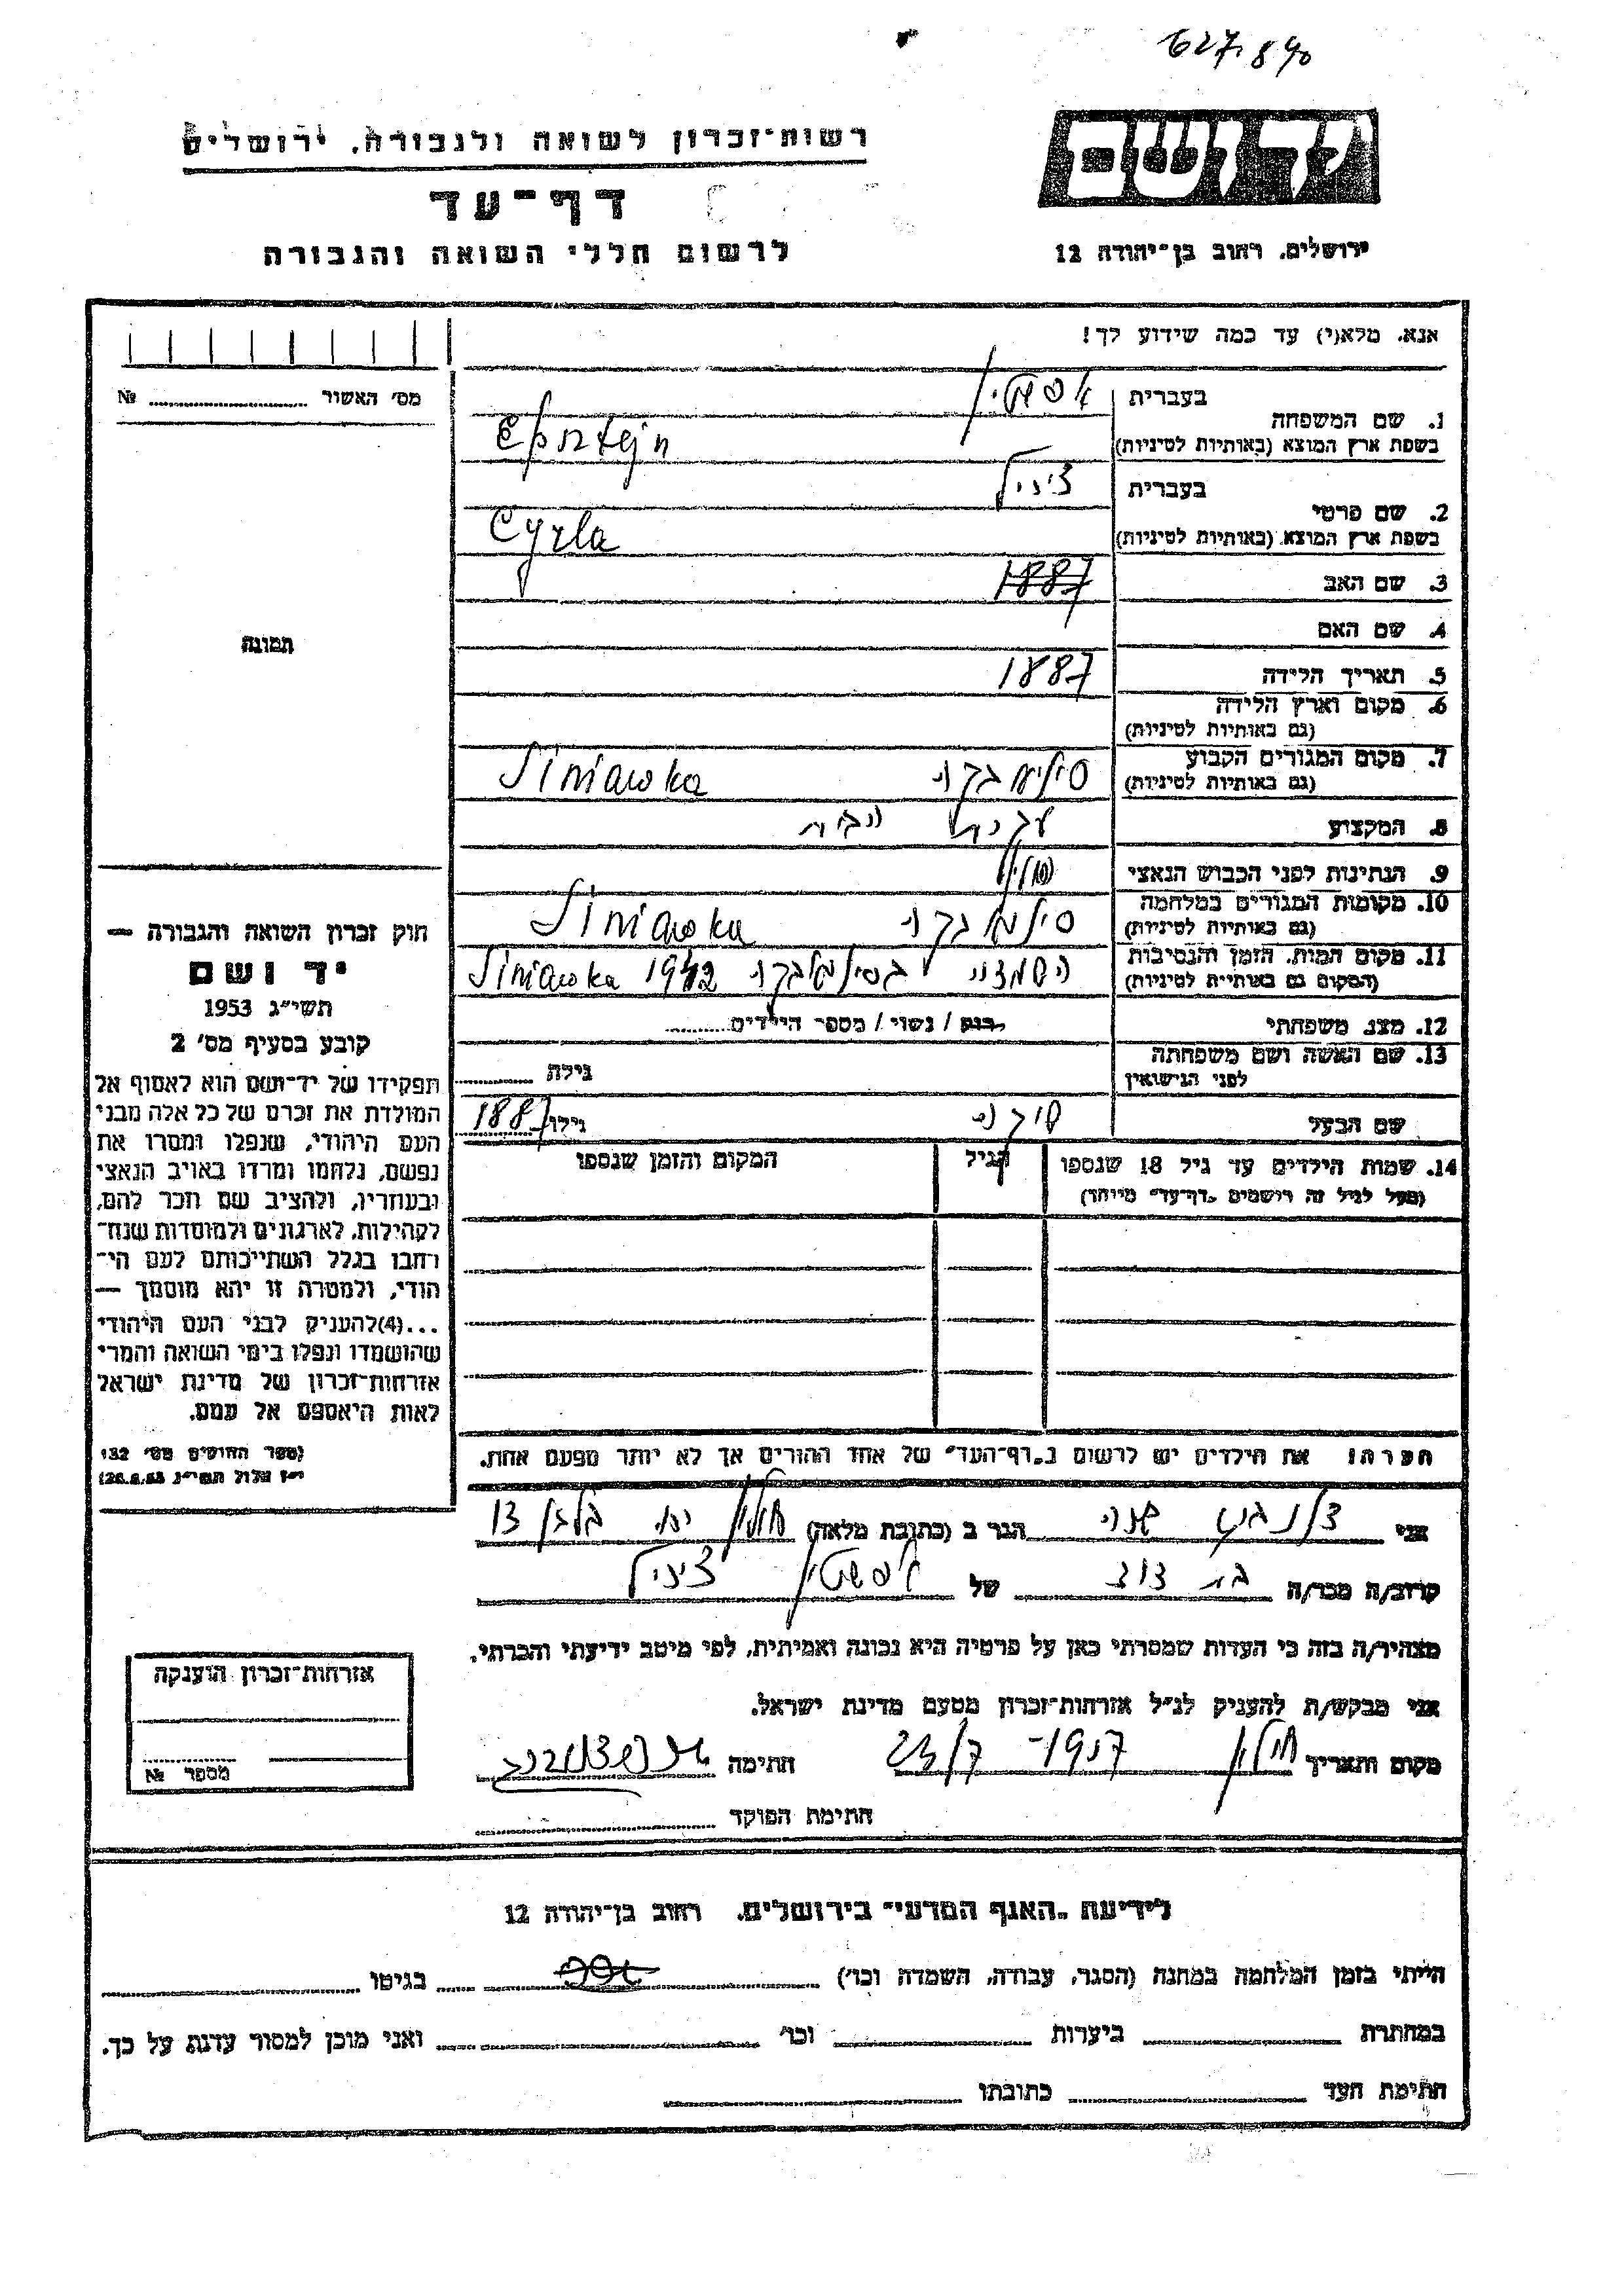 627.840
יד ושם
רשות־זכרון לשואה ולגבורה, ירושלים
דף־עד
לרשום חללי השואה והגבורה
ירושלים, רחוב בן־יהודה 12
אנא, מלא(י) עד כמה שידוע לך!
מס׳ האשור № ........
1. שם המשפחה
בעברית אפשטיין
בשפת ארץ המוצא (באותיות לטיניות) Epsztejn
2. שם פרטי
בעברית צירל
בשפת ארץ המוצא (באותיות לטיניות) Cyrla
3. שם האב 1887
4. שם האם
תמונה
5. תאריך הלידה 1887
6. מקום וארץ הלידה
(גם באותיות לטיניות)
7. מקום המגורים הקבוע
(גם באותיות לטיניות) Siniawka
8. המקצוע עקרת הבית
9. הנתינות לפני הכבוש הנאצי פולין
10. מקומות המגורים במלחמה
(גם באותיות לטיניות) Siniawka
11. מקום המות, הזמן והנסיבות
(המקום גם באותיות לטיניות) Siniawka 1942
12. מצב משפחתי רווק / נשוי / מספר הילדים........
13. שם האשה ושם משפחתה
לפני הנישואין גילה ........
שם הבעל גילו 1887
14. שמות הילדים עד גיל 18 שנספו
(מעל לגיל זה רושמים „דף־עד״ מיוחד)
הגיל
המקום והזמן שנספו
חוק זכרון השואה והגבורה —
יד ושם
תשי״ג 1953
קובע בסעיף מס׳ 2
תפקידו של יד־ושם הוא לאסוף אל
המולדת את זכרם של כל אלה מבני
העם היהודי, שנפלו ומסרו את
נפשם, נלחמו ומרדו באויב הנאצי
ובעוזריו, ולהציב שם וזכר להם,
לקהילות, לארגונים ולמוסדות שנח־
רבו בגלל השתייכותם לעם הי־
הודי, ולמטרה זו יהא מוסמך —
...(4)להעניק לבני העם היהודי
שהושמדו ונפלו בימי השואה והמרי
אזרחות־זכרון של מדינת ישראל
לאות היאספם אל עמם.
(ספר החוקים מס׳ 132
י״ז אלול תשי״ג 28.8.53)
הערה: את הילדים יש לרשום ב„דף־העד״ של אחד ההורים אך לא יותר מפעם אחת.
אני הגר ב (כתובת מלאה) חולון
קרוב/ה מכר/ה בת דוד של אפשטיין צירל
מצהיר/ה בזה כי העדות שמסרתי כאן על פרטיה היא נכונה ואמיתית, לפי מיטב ידיעתי והכרתי.
אני מבקש/ת להעניק לנ״ל אזרחות־זכרון מטעם מדינת ישראל.
מקום ותאריך חולון חתימה
חתימת הפוקד
אזרחות־זכרון הוענקה
מספר №
לידיעת „האגף המדעי״ בירושלים, רחוב בן־יהודה 12
הייתי בזמן המלחמה במחנה (הסגר, עבודה, השמדה וכו׳) בגיטו
במחתרת ביערות וכו׳ ואני מוכן למסור עדות על כך.
חתימת העד כתובתו